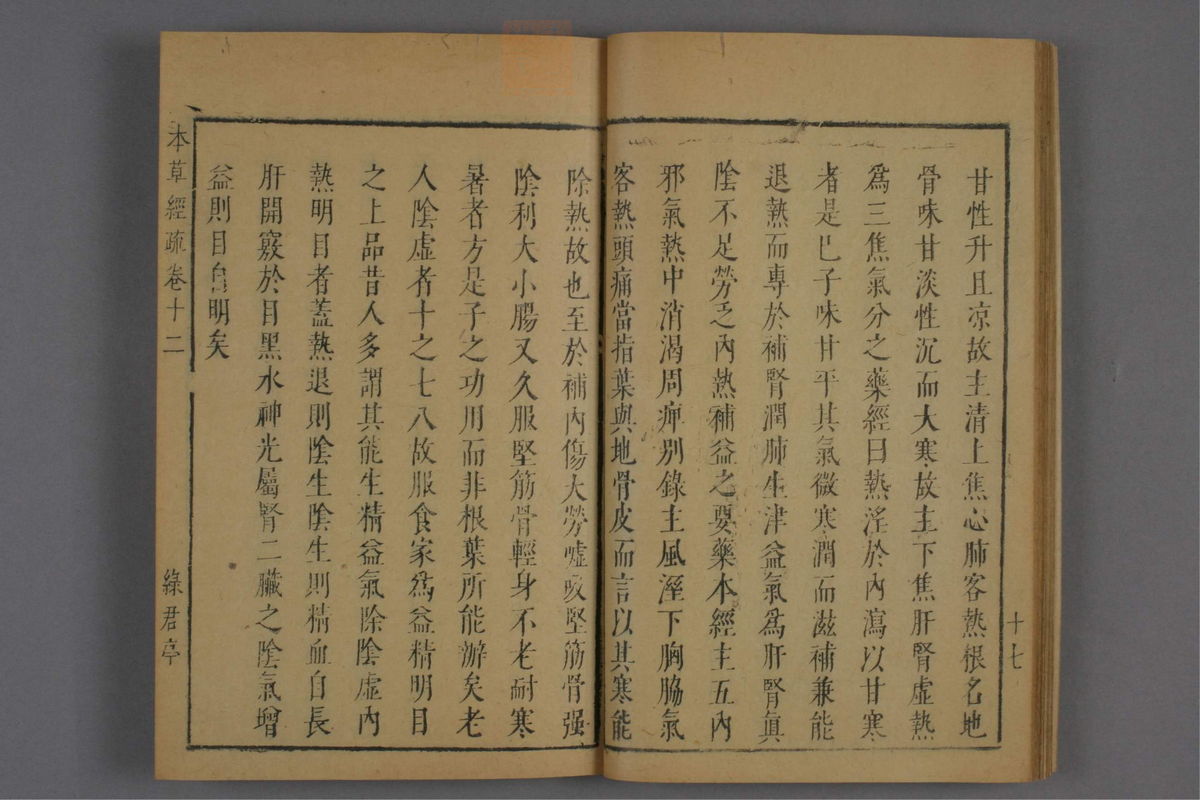 十七
甘性升且凉故主清上焦心肺客熱根名地
骨味甘淡性沉而大寒故主下焦肝腎虛熱
爲三焦氣分之藥經曰熱淫於內瀉以甘寒
者是巳子味甘平其氣微寒潤而滋補兼能
退熱而專於補腎潤肺生津益氣爲肝腎眞
陰不足勞乏內熱補益之要藥本經主五內
邪氣熱中消渴周痺別錄主風溼下胸脇氣
客熱頭痛當指葉與地骨皮而言以其寒能
除熱故也至於補內傷大勞噓吸堅筋骨强
陰利大小腸又久服堅筋骨輕身不老耐寒
暑者方是子之功用而非根葉所能辦矣老
人陰虛者十之七八故服食家爲益精明目
之上品昔人多謂其能生精益氣除陰虛內
熱明目者蓋熱退則陰生陰生則精血自長
肝開竅於目黑水神光屬腎二臟之陰氣增
益則目自明矣
本草經疏卷十二
綠君亭